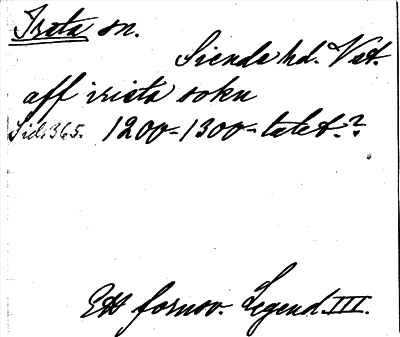 Irsta sn.
Siende hd. Vstm.
aff irista sokn
Sid. 365. 1200-1300-talet.?
Ett fornsv. Legend. III.